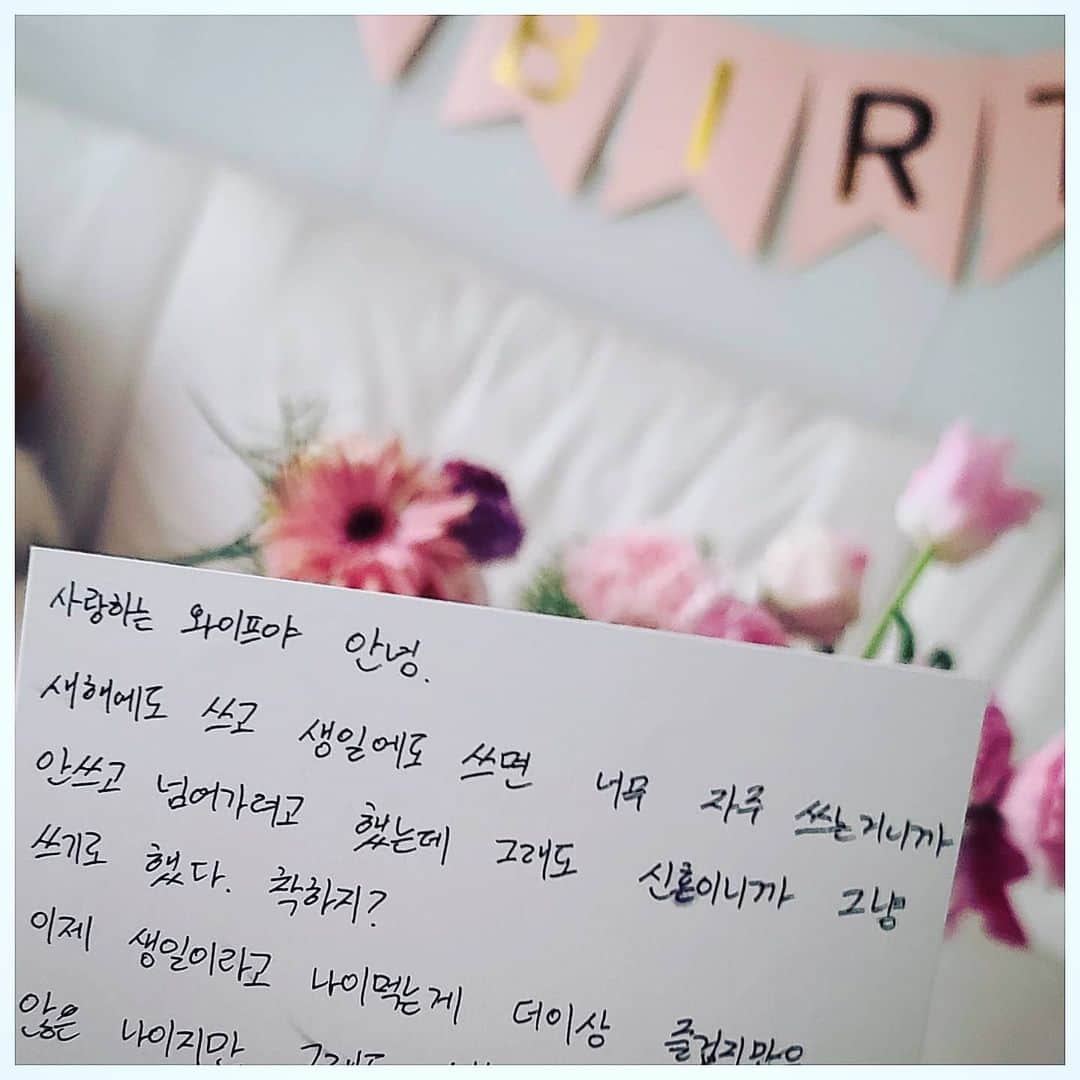 BIRT
사랑하는 와이프야 안녕.
새해에도 쓰고 생일에도 쓰면 너무 자주 쓰는거니까
안쓰고 넘어가려고 했는데 그래도 신혼이니까 그냥
쓰기로 했다. 착하지?
이제 생일이라고 나이먹는게 더이상 즐겁지만은
않은 나이지만 그래도